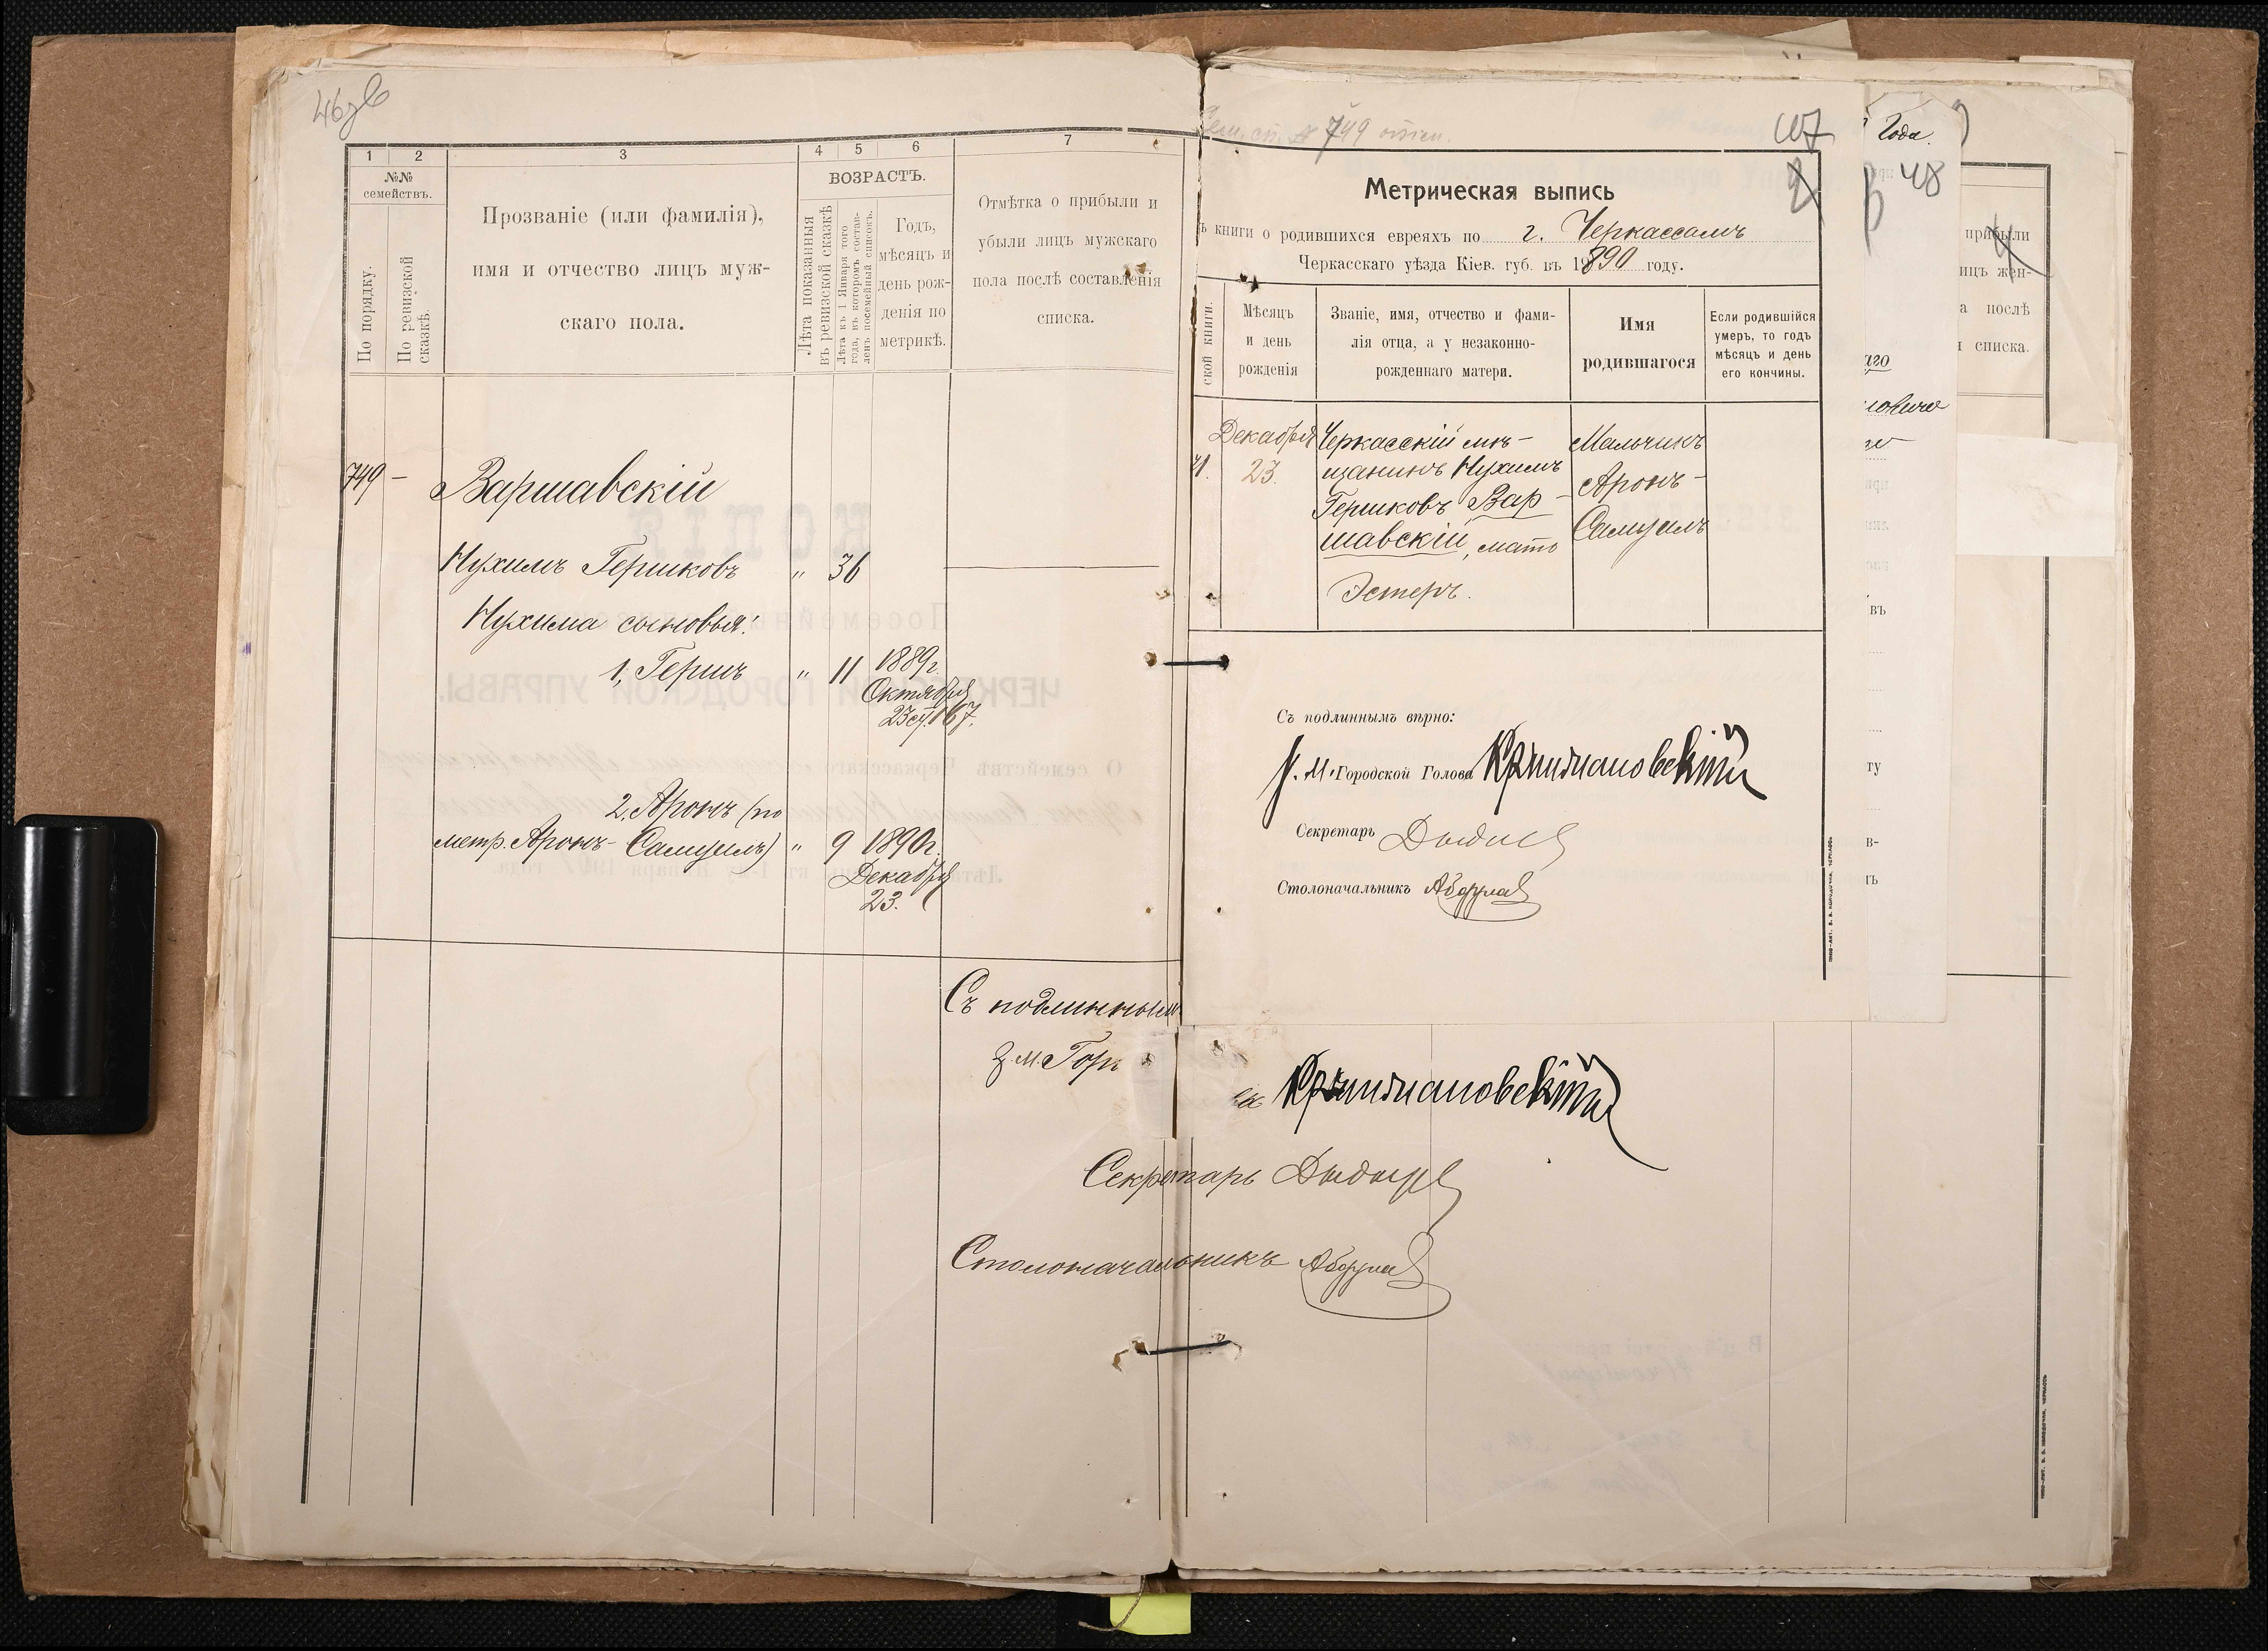 46
1 2 3 4 5 6 7
№№
семействъ.
По порядку.
По ревизской
сказкѣ.
Прозваніе (или фамилія),
имя и отчество лицъ муж-
скаго пола.
ВОЗРАСТЪ.
Лѣта показанныя
въ ревизской сказкѣ
Лѣта къ 1 Января того
года, въ которомъ состав-
ленъ посемейный списокъ.
Годъ,
мѣсяцъ и
день рож-
денія по
метрикѣ.
Отмѣтка о прибыли и
убыли лицъ мужскаго
пола послѣ составленія
списка.
749 — Варшавскій
Нухимъ Гершковъ " 36
Нухима сыновья:
1, Гершъ " 11 1889г.
Октября
23
2. Аронъ (по
метр. Аронъ-Самуилъ) " 9 1890г.
Декабря
23.
Съ подлиннымъ
З. М. Гор
Секретарь
Столоначальникъ
№ 749
107
Метрическая выпись
ъ книги о родившихся евреяхъ по г. Черкассамъ
Черкасскаго уѣзда Кіев. губ. въ 1890 году.
ской книги.
Мѣсяцъ
и день
рожденія
Званіе, имя, отчество и фами-
лія отца, а у незаконно-
рожденнаго матери.
Имя
родившагося
Если родившійся
умеръ, то годъ
мѣсяцъ и день
его кончины.
Декабря
23.
Черкасскій мѣ-
щанинъ Нухимъ
Гершковъ Вар-
шавскій, мать
Эстеръ.
Мальчикъ
Аронъ-
Самуилъ
Съ подлиннымъ вѣрно:
Городской Голова
Секретарь
Столоначальникъ
Года.
48
прибыли
ицъ жен-
а послѣ
списка.
въ
ту
в-